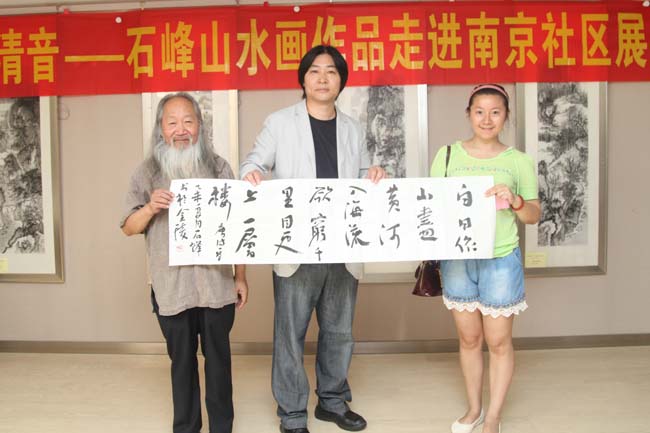 清音——石峰山水画作品走进南京社区展
白日依
山盡
黄河
入海流
欲窮千
里目更
上一層
樓
石峰
书於金陵